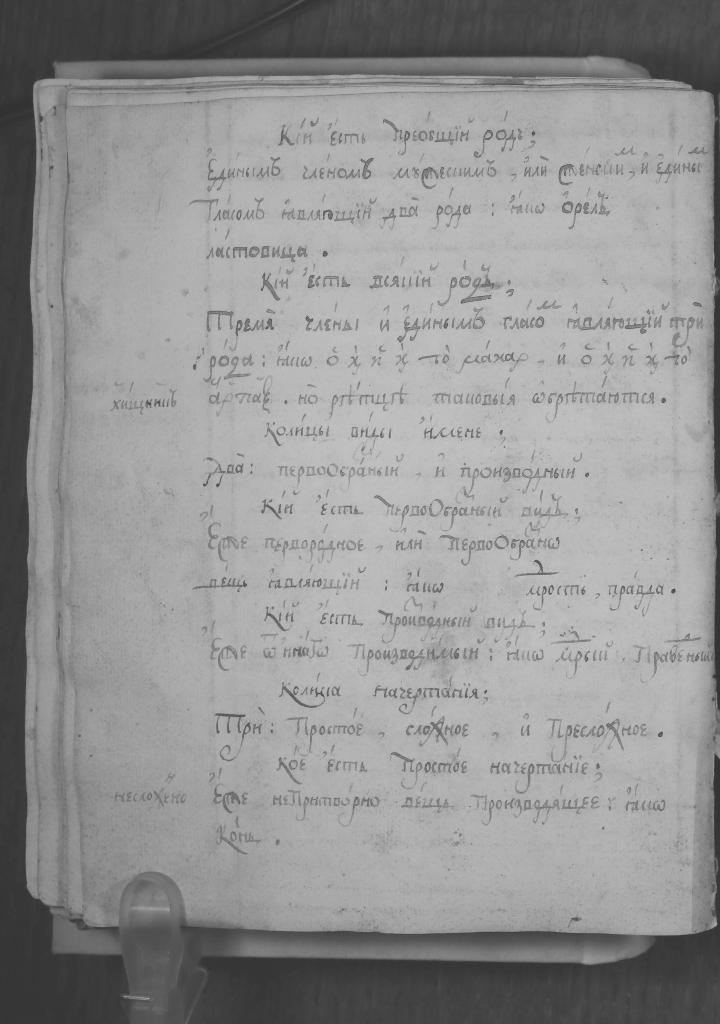 Кі́й є҆́сть преѻ́бщїй ро́дъ;
Е҆ди́нымъ чле́номъ мꙋ́жескимъ, и҆лѝ же́нскиⷨ, и҆ е҆ди́ныⷨ
Гла́сомъ ꙗ҆влѧ́ющїй два̀ ро́да : ꙗ҆́кѡ ѻ҆ре́лъ,
ла́стовица .
Кі́й є҆́сть всѧ́кїй ро́дъ;
Треми̑ чле́ны и҆ е҆ди́нымъ гла́соⷨ ꙗ҆влѧ́ющїй трѝ
ро́да : ꙗ҆́кѡ ὁ ϗ̀ ἡ ϗ̀ τὸ μάκαρ . и҆ ὁ ϗ̀ ἡ ϗ̀ τὸ
ἅρπαξ . но̀ рѣ́тцѣ таковы́ѧ ѡ҆брѣта́ютсѧ .
хи́щникъ
Коли́цы ви́ды и҆́мене ;
Два̀ : первоѻбра́зⷩный , и҆ произво́дный .
Кі́й є҆́сть первоѻбра́зⷩный ви́дъ ;
Е҆́же перворо́дное , и҆лѝ первоѻбра́зⷩѡ
ве́щь ꙗ҆влѧ́ющїй : ꙗ҆́кѡ мⷣрость , пра́вда .
Кі́й є҆́сть произво́дный ви́дъ ;
Е҆́же ѿ и҆на́гѡ производи́мый : ꙗ҆́кѡ мⷣрый . Пра́веⷣный
Коли́ка начерта́нїѧ ;
Трѝ : Просто́е , сло́жное , и҆ Пресло́жное .
Ко́е є҆́сть Просто́е начерта́нїе ;
несло́жеⷩно
Е҆́же непритво́рно ве́щь производѧ́щее : ꙗ҆́кѡ
Ко́нь .